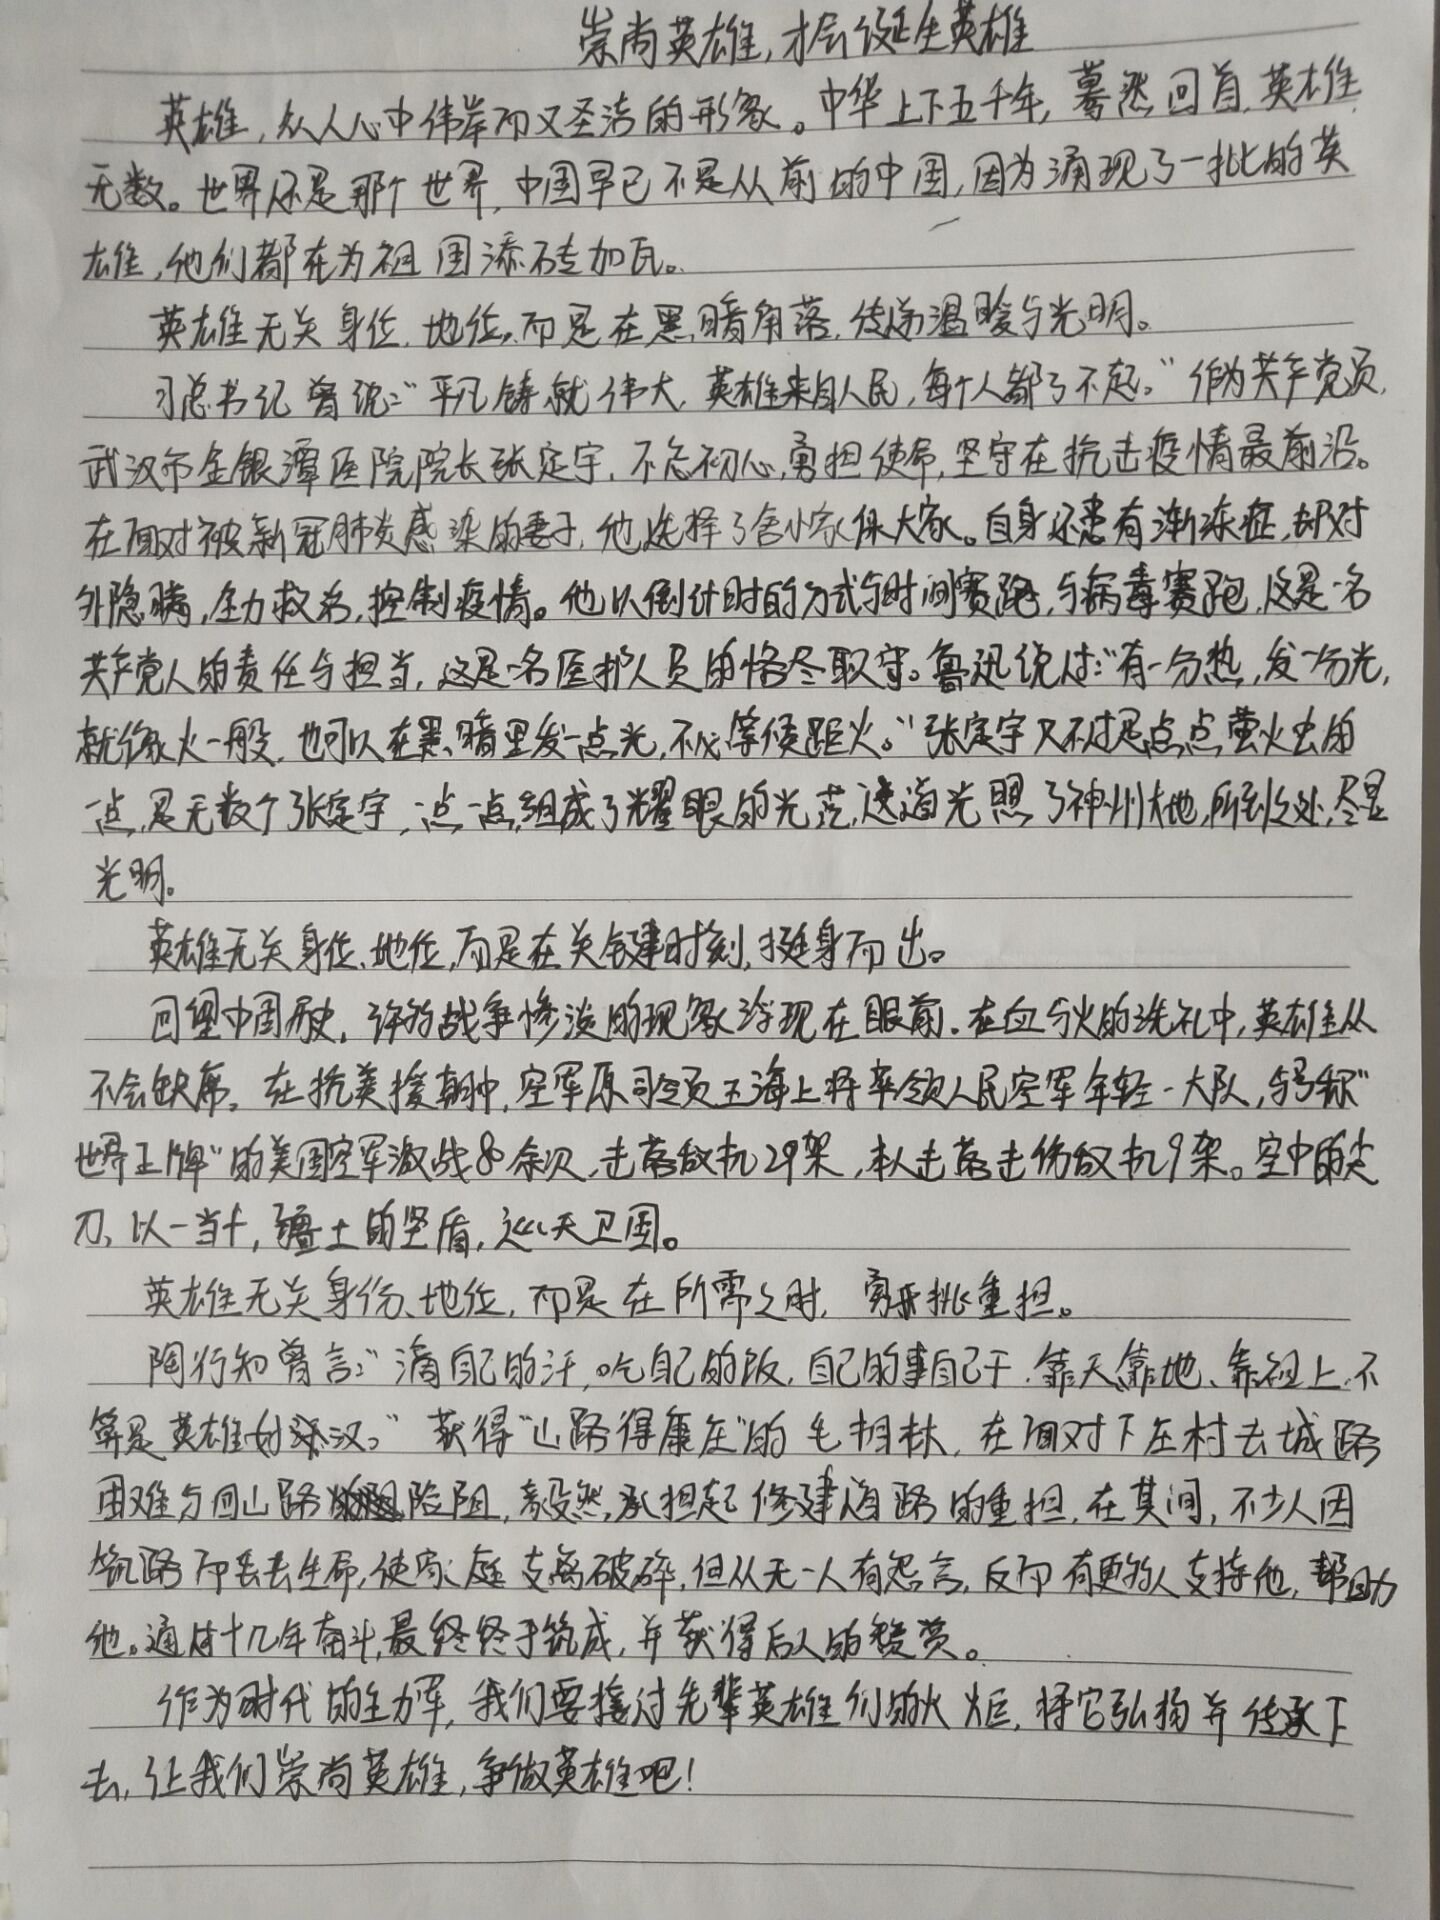 崇尚英雄,才会诞生英雄
英雄,众人心中伟岸而又圣洁的形象。中华上下五千年,蓦然回首,英雄
无数。世界还是那个世界,中国早已不是从前的中国,因为涌现了一批的英
雄,他们都在为祖国添砖加瓦。
英雄无关身位、地位,而是在黑暗角落,传递温暖与光明。
习总书记曾说:“平凡铸就伟大,英雄来自人民,每个人都了不起。”作为共产党员,
武汉市金银潭医院院长张定宇,不忘初心,勇担使命,坚守在抗击疫情最前沿。
在面对被新冠肺炎感染的妻子,他选择了舍小家保大家。自身还患有渐冻症,却对
外隐瞒,全力救治,控制疫情。他以倒计时的方式与时间赛跑,与病毒赛跑,这是一名
共产党人的责任与担当,这是一名医护人员的恪尽职守。鲁迅说过:“有一分热,发一分光,
就像火一般,也可以在黑暗里发一点光,不必等候距火。”张定宇只不过是点点萤火虫的
一点,是无数个张定宇,一点一点,组成了耀眼的光茫,这道光照了神州大地,所到之处,尽是
光明。
英雄无关身位、地位,而是在关键时刻,挺身而出。
回望中国历史,许多战争惨淡的现象浮现在眼前。在血与火的洗礼中,英雄从
不会缺席。在抗美援朝中,空军原司令员王海上将率领人民空军年轻一大队,与号称“
世界王牌”的美国空军激战80余次,击落敌机29架,本人击落击伤敌机9架。空中的尖
刀,以一当十,疆土的坚盾,巡天卫国。
英雄无关身份、地位,而是在所需之时,勇于挑重担。
陶行知曾言:“滴自己的汗,吃自己的饭,自己的事自己干,靠天、靠地、靠祖上,不
算是英雄好汉。”获得“山路得康庄”的毛相林,在面对下庄村去城路
困难与回山路险阻,毅然承担起修建道路的重担,在其间,不少人因
筑路而丢去生命,使家庭支离破碎,但从无一人有怨言,反而有更多人支持他,帮助
他。通过十几年奋斗,最终终于筑成,并获得后人的赞赏。
作为时代的主力军,我们要接过先辈英雄们的火炬,将它弘扬并传承下
去,让我们崇尚英雄,争做英雄吧!